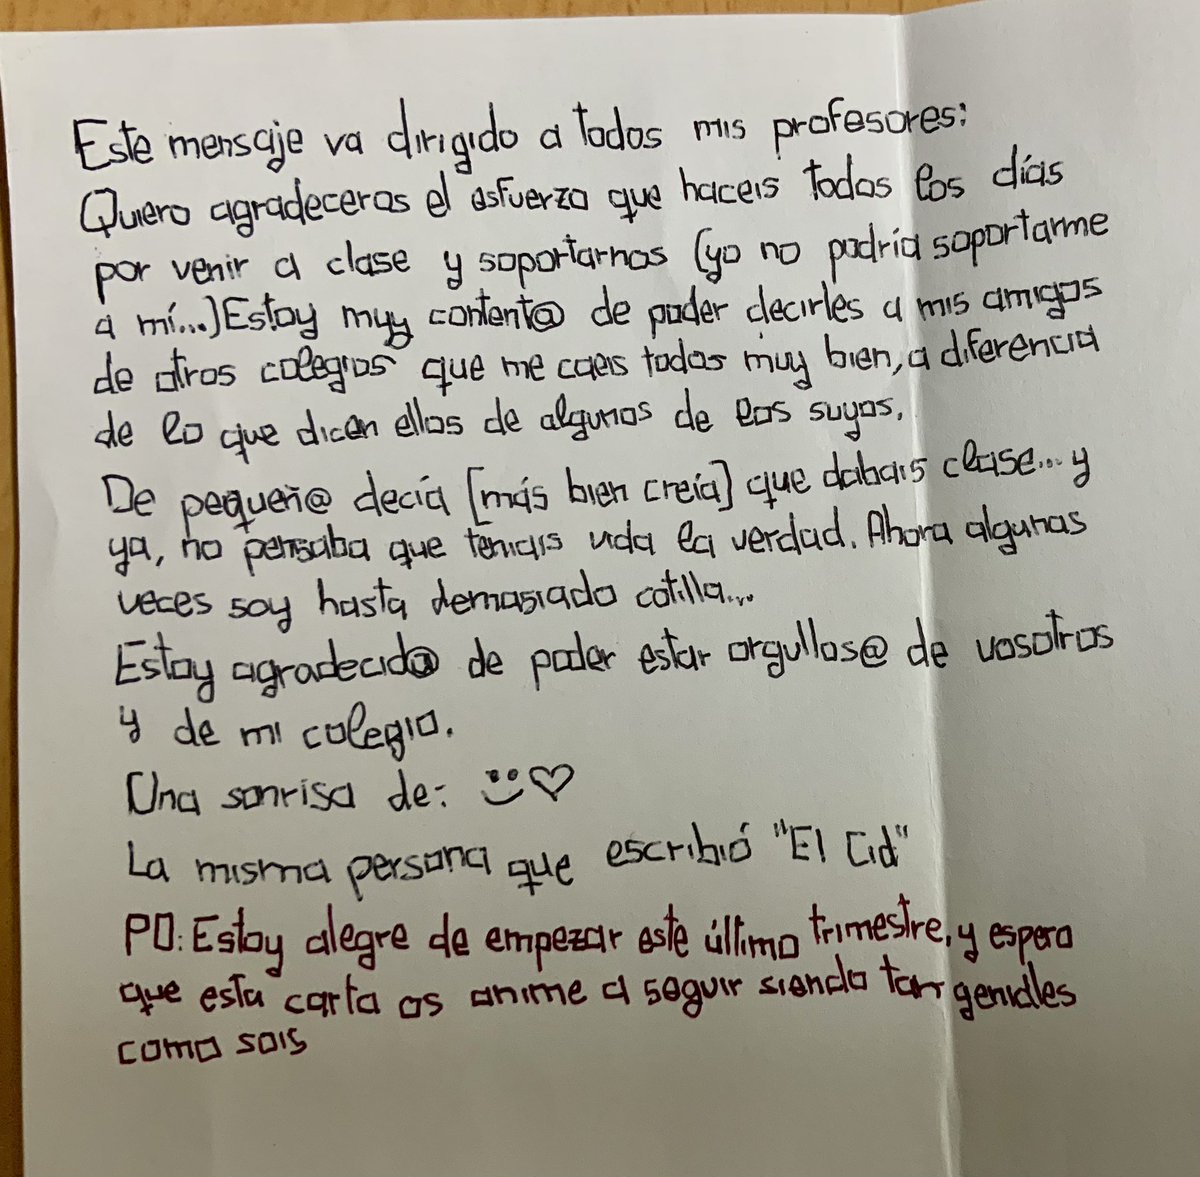 Este mensaje va dirigido a todos mis profesores:
Quiero agradeceros el esfuerzo que haceis todos los días
por venir a clase y soportarnos (yo no podría soportarme
a mí...) Estoy muy content@ de poder decirles a mis amigos
de otros colegios que me caeis todos muy bien, a diferencia
de lo que dicen ellos de algunos de los suyos.
De pequeñ@ decía [más bien creía] que dabais clase... y
ya, no pensaba que teniais vida la verdad. Ahora algunas
veces soy hasta demasiado cotilla...
Estoy agradecid@ de poder estar orgullos@ de vosotros
y de mi colegio.
Una sonrisa de:
La misma persona que escribió "El Cid"
PD: Estoy alegre de empezar este último trimestre, y espero
que esta carta os anime a seguir siendo tan geniales
como sois